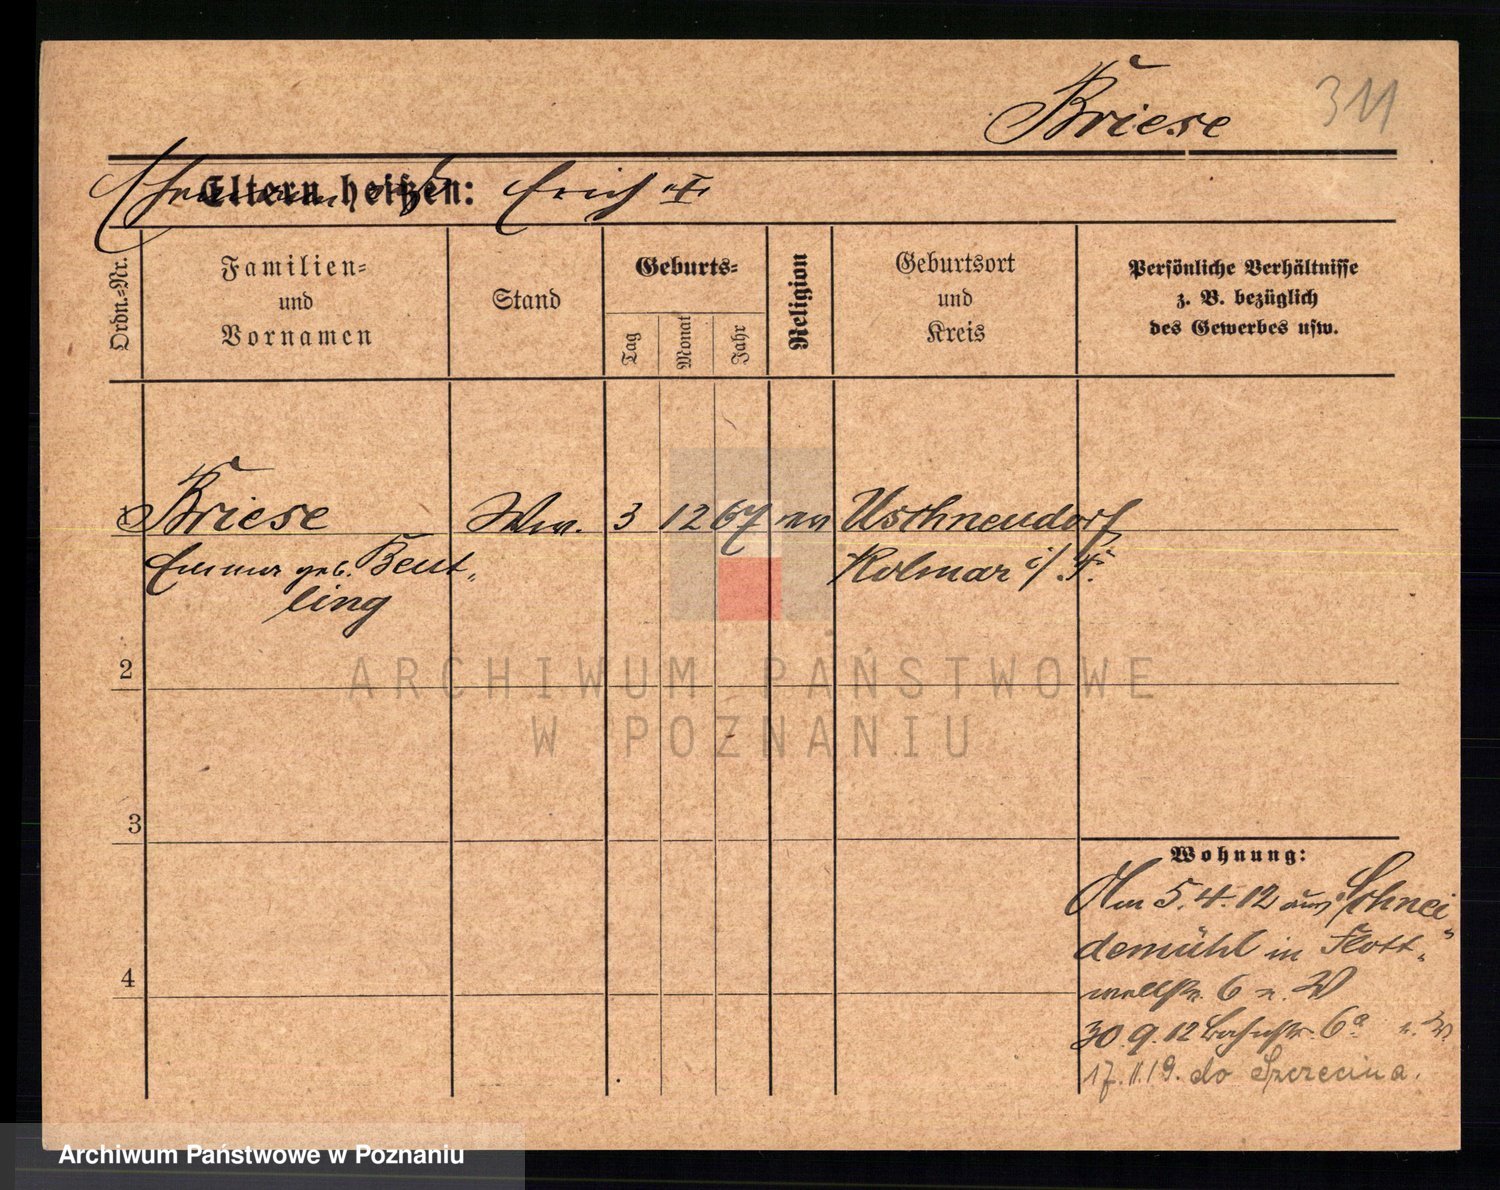 Briese 311
Eltern heißen: Erich I
Ordn.-Nr.
Familien-
und
Vornamen
Stand
Geburts-
Tag
Monat
Jahr
Religion
Geburtsort
und
Kreis
Persönliche Verhältnisse
z. B. bezüglich
des Gewerbes usw.
1 Briese Ww. 3 12 67 Uschneudorf
Emma geb. Beut-
ling
Kolmar i/.P.
2
ARCHIWUM PAŃSTWOWE
W POZNANIU
3
Wohnung:
Am 5.4.12 aus Schnei-
demühl in Flott-
wellstr. 6 n. W
4
30.9.12 Bahnstr. 6a n. W.
17.11.19. do Szczecina.
Archiwum Państwowe w Poznaniu